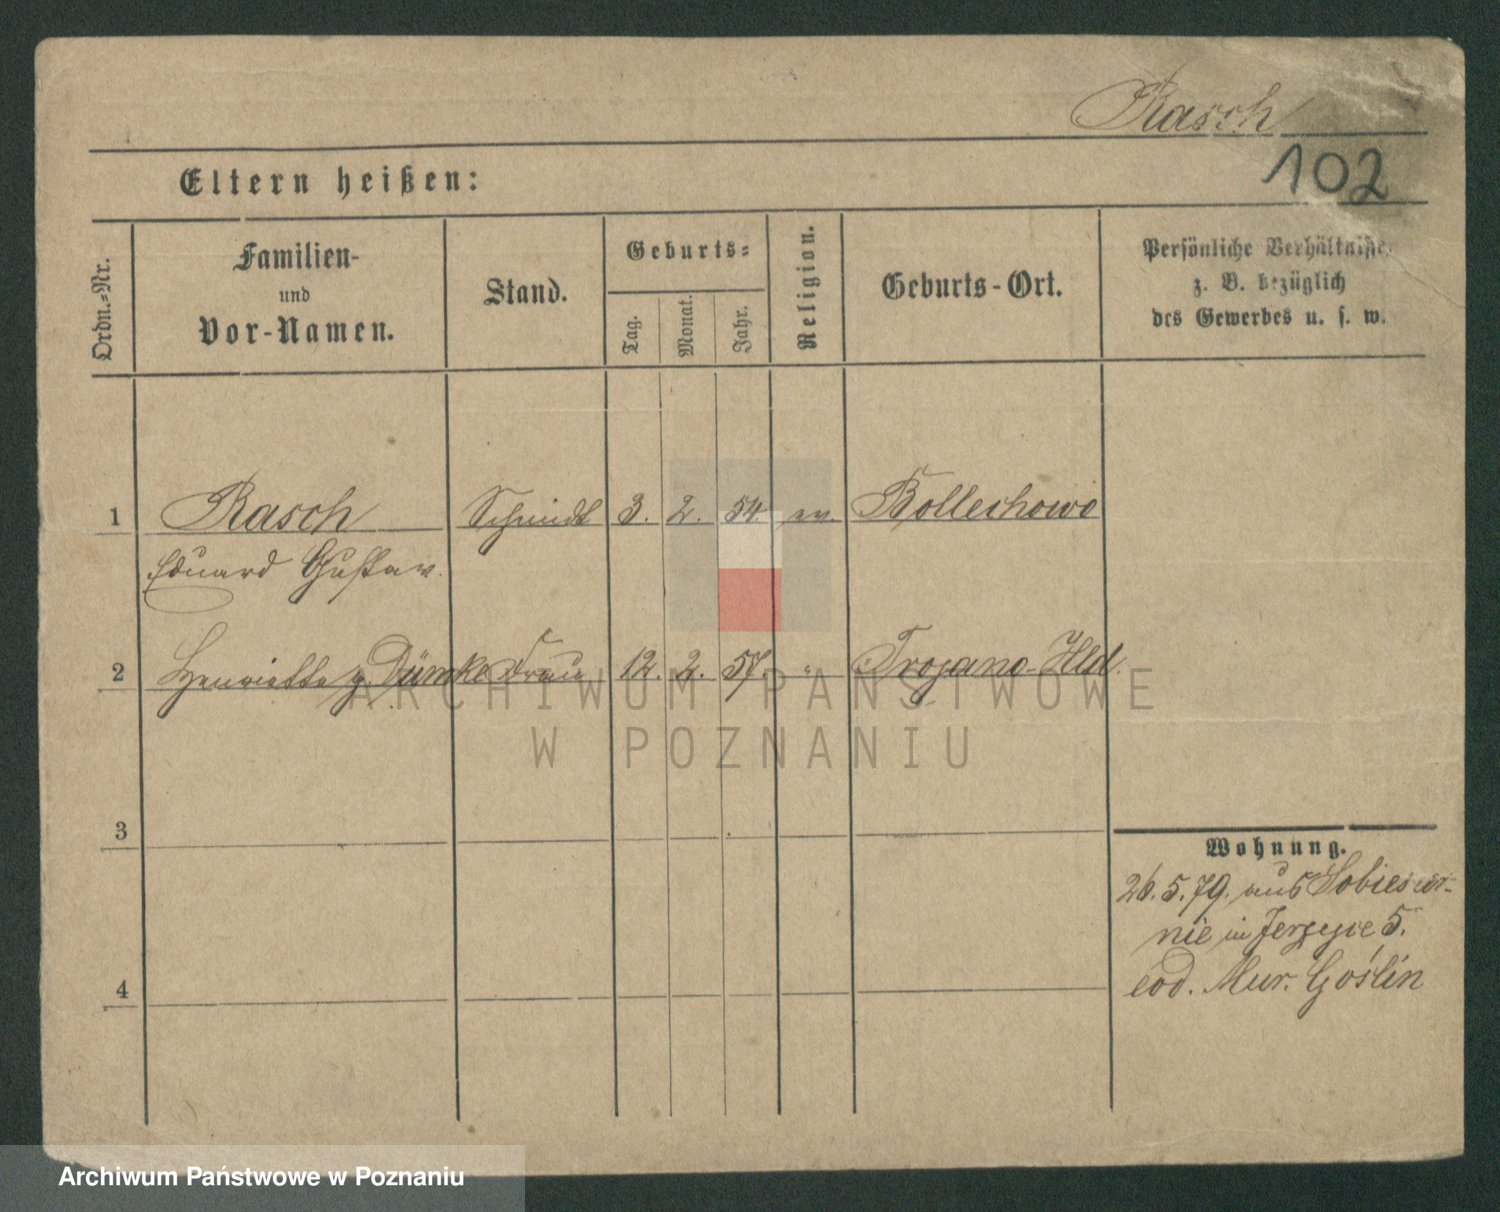 Rasch
102
Eltern heißen:
Ordn.=Nr.
Familien-
und
Vor-Namen.
Stand.
Geburts=
Tag.
Monat.
Jahr.
Religion.
Geburts-Ort.
Persönliche Verhältnisse,
z. B. bezüglich
des Gewerbes u. s. w.
1 Rasch Schmidt 3. 2. 54. ev. Bollechowo
Eduard Gustav.
2 Henriette g. Dümke Frau 12. 2. 57. " Trojano-Hld.
3
4
Wohnung.
26. 5. 79. aus Sobiesier-
nie in Jerzyce 5.
eod. Mur. Goślin
ARCHIWUM PAŃSTWOWE
W POZNANIU
Archiwum Państwowe w Poznaniu